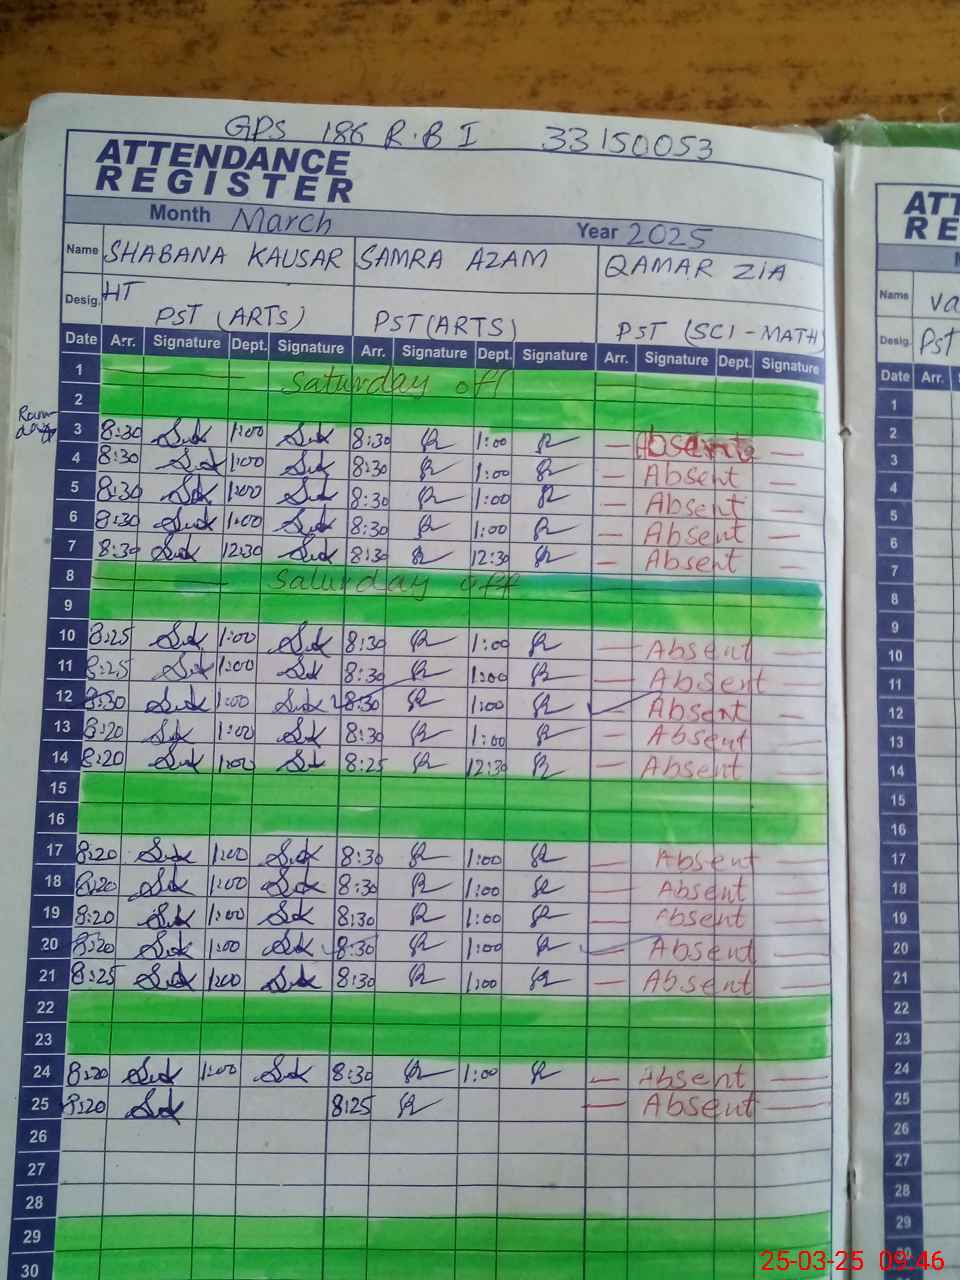 GPS 186 R.B I 33150053
ATTENDANCE
REGISTER
Month March Year 2025
Name SHABANA KAUSAR SAMRA AZAM QAMAR ZIA
Desig. HT PST (ARTS) PST(ARTS) PST (SCI-MATH)
Date Arr. Signature Dept. Signature Arr. Signature Dept. Signature Arr. Signature Dept. Signature
1 Saturday off
2
3 8:30 1:00 8:30 1:00 — Absent —
4 8:30 1:00 8:30 1:00 — Absent —
5 8:30 1:00 8:30 1:00 — Absent —
6 8:30 1:00 8:30 1:00 — Absent —
7 8:30 12:30 8:30 12:30 — Absent —
8 Saturday off
9
10 8:25 1:00 8:30 1:00 — Absent —
11 8:25 1:00 8:30 1:00 — Absent —
12 8:30 1:00 8:30 1:00 — Absent —
13 8:20 1:00 8:30 1:00 — Absent —
14 8:20 1:00 8:25 12:30 — Absent —
15
16
17 8:20 1:00 8:30 1:00 — Absent —
18 8:20 1:00 8:30 1:00 — Absent —
19 8:20 1:00 8:30 1:00 — Absent —
20 8:20 1:00 8:30 1:00 — Absent —
21 8:25 1:00 8:30 1:00 — Absent —
22
23
24 8:20 1:00 8:30 1:00 — Absent —
25 8:20 8:25 — Absent —
26
27
28
29
30
ATT
RE
Name va
Desig. Pst
Date Arr.
1
2
3
4
5
6
7
8
9
10
11
12
13
14
15
16
17
18
19
20
21
22
23
24
25
26
27
28
29
30
25-03-25 09:46